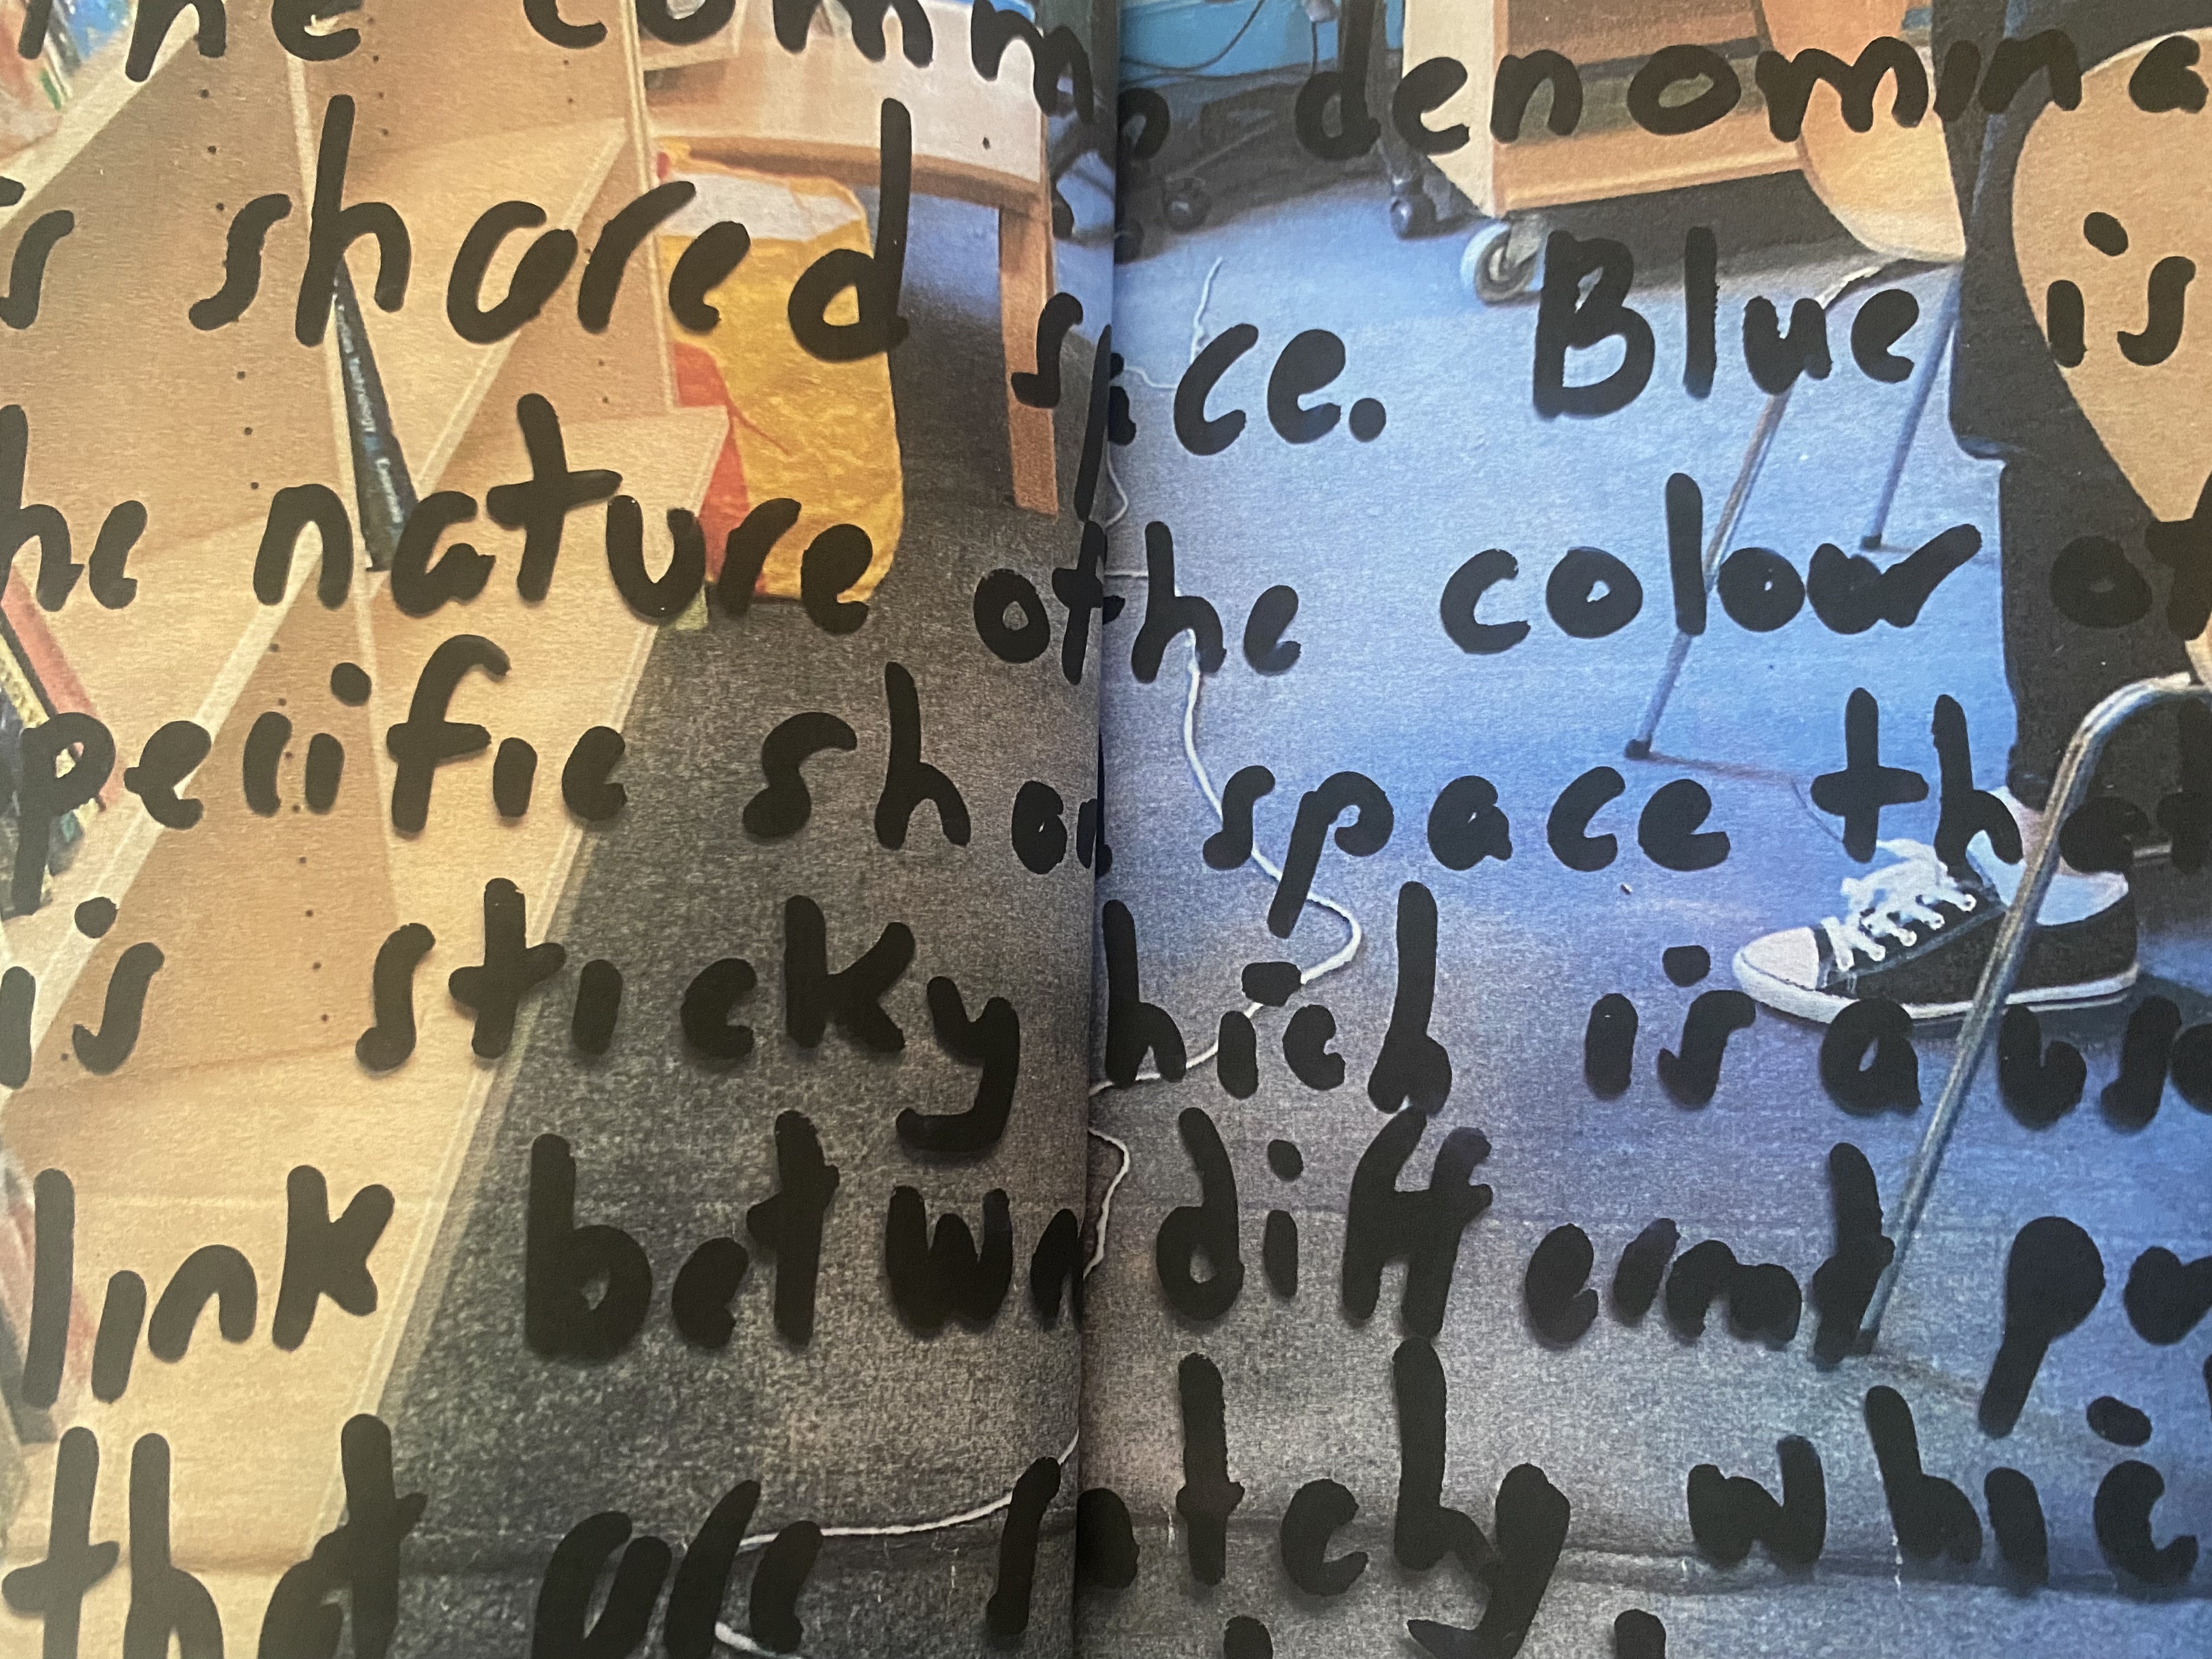 The comm denomina
s shared space. Blue is
he nature of the colour of
pecific shar space that
is sticky hich is a use
link betwe different pa
that are satchy whic